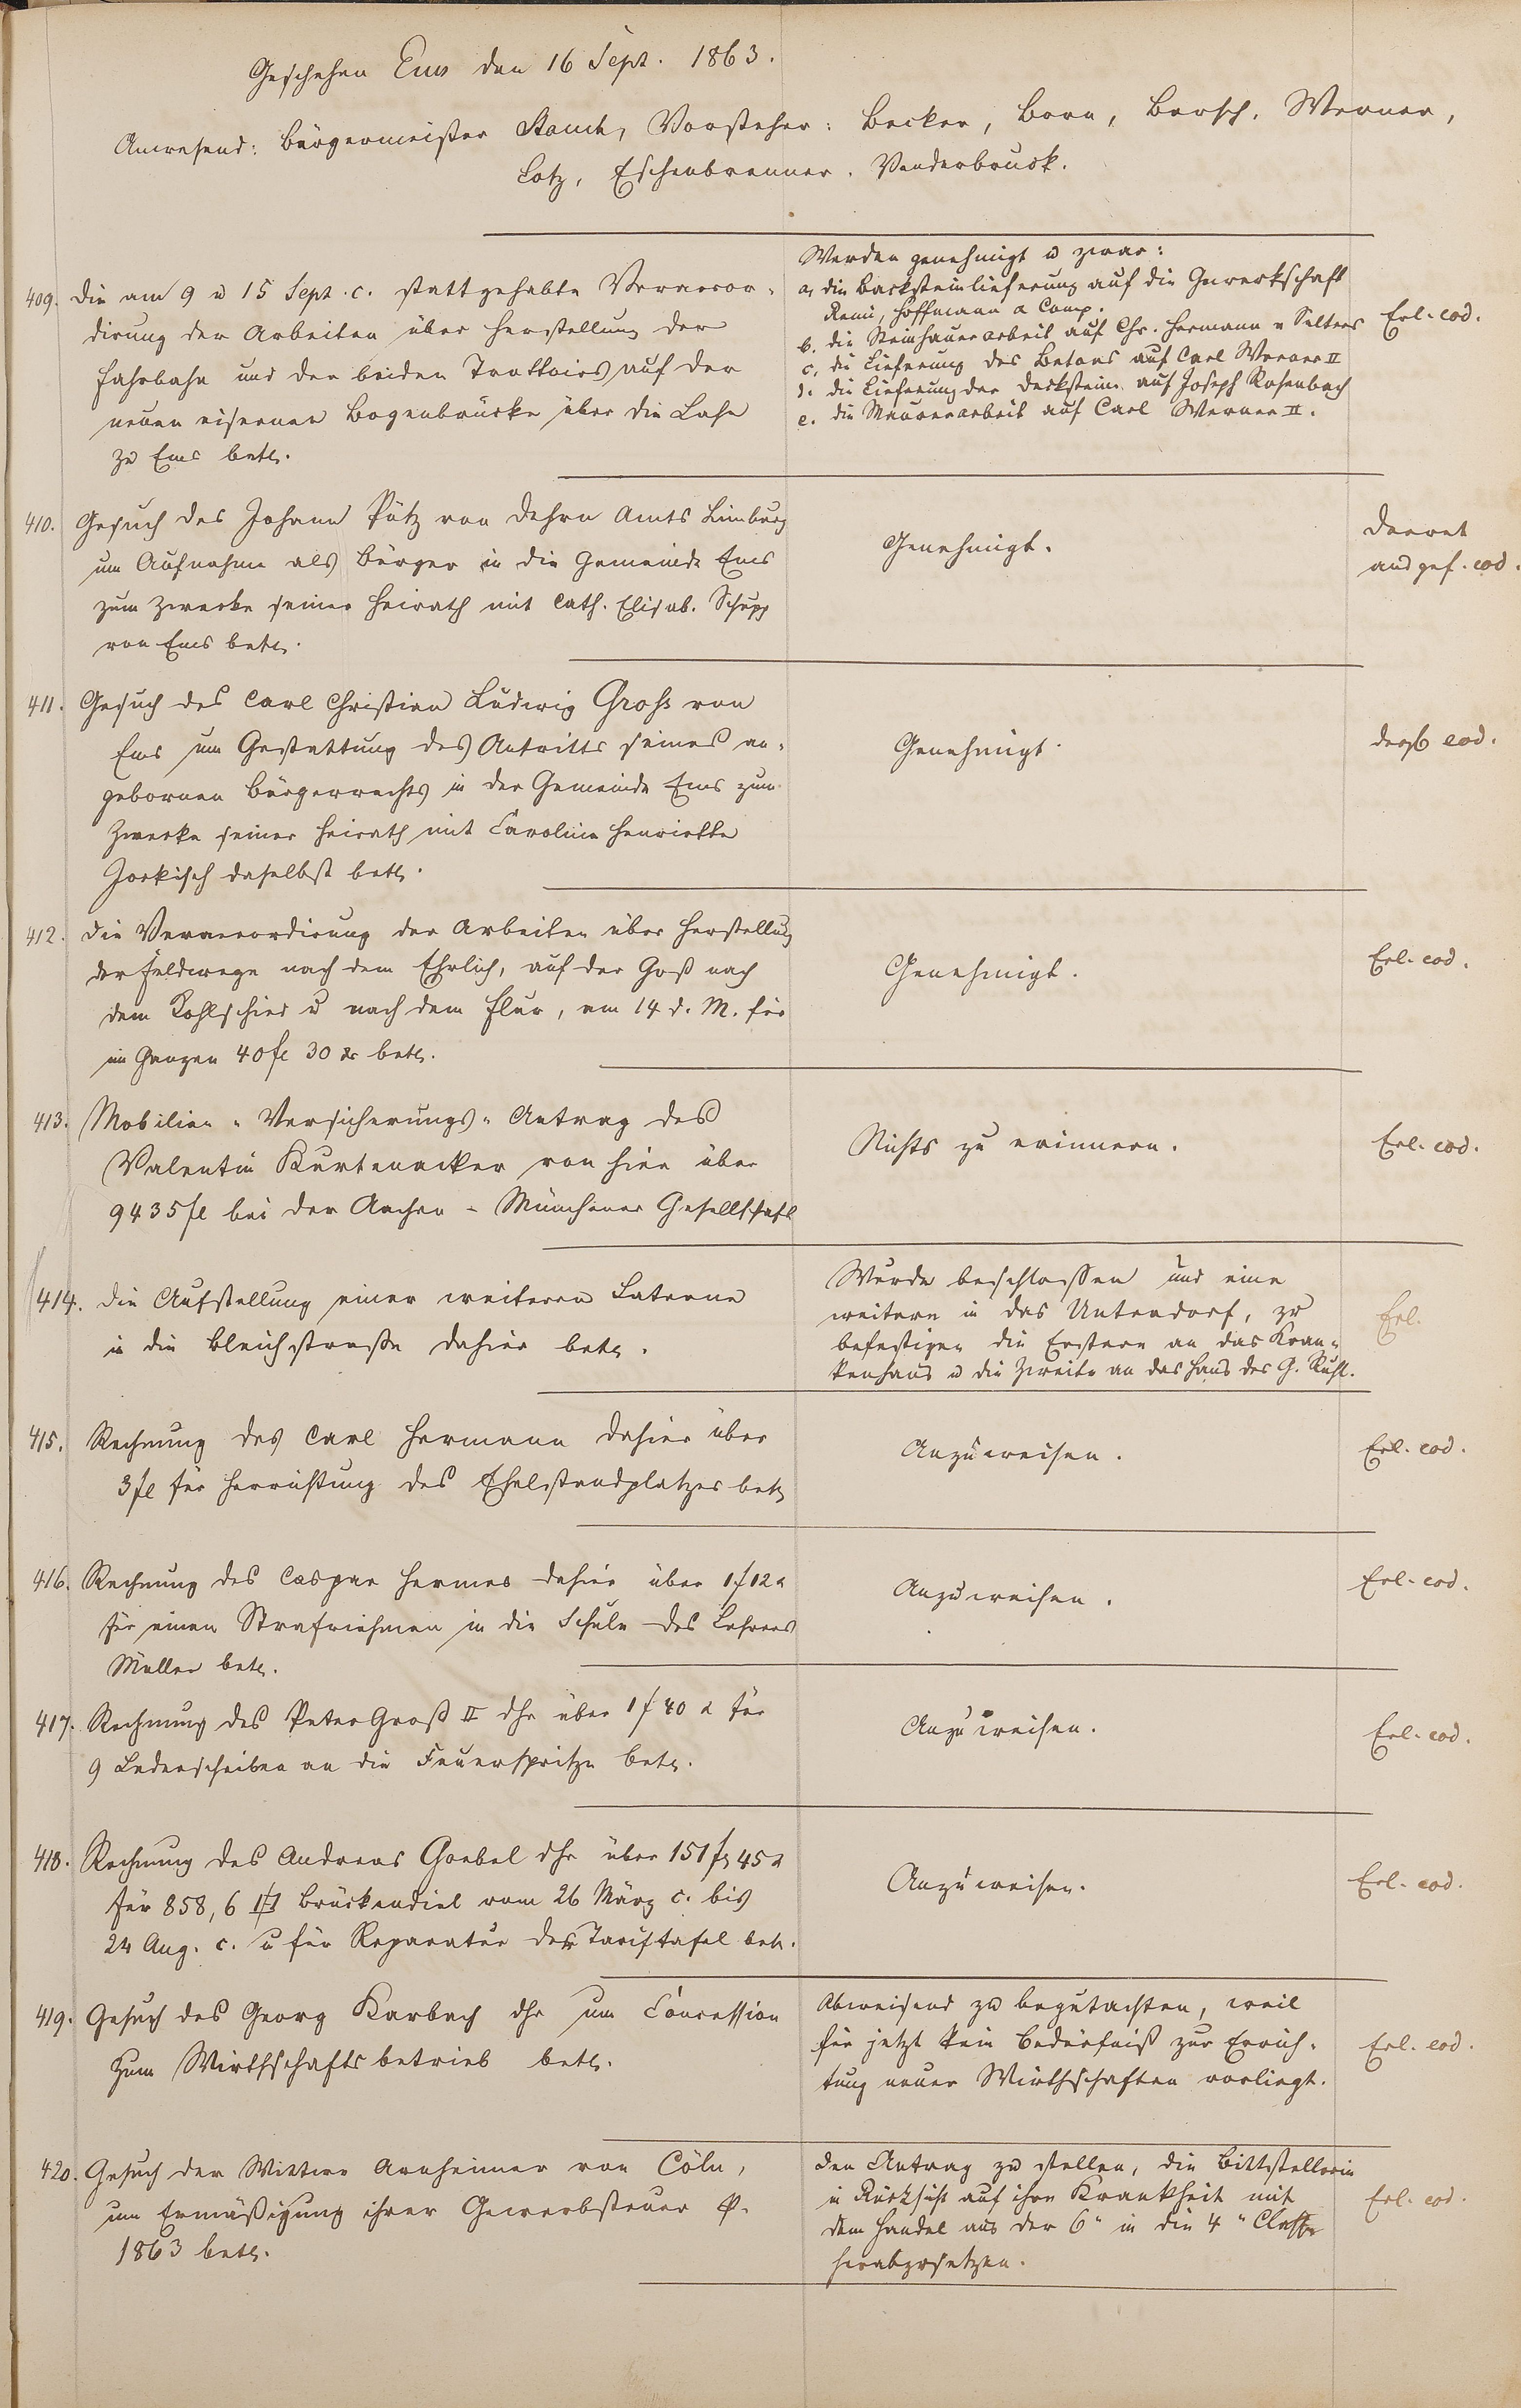 Geschehen Ems den 16 Sept. 1863.
Anwesend: Bürgermeister Stauch, Vorsteher: Becker, Born, Borsch, Werner,
Lotz, Eschenbrenner, Vanderbruck.
409. Die am 9 u 15 Sept. c. stattgehabte Veraccor-
dirung der Arbeiten über Herstellung der
Fahrbahn und der beiden Trottoirs auf der
neuen eisernen Bogenbrücke über die Lahn
zu Ems betr.
Werden genehmigt u zwar:
a, die Backsteinlieferung auf die Gewerkschaft
Remi, Hoffmann & Comp.
b. die Steinhauerarbeit auf Chr. Hermann v Selters
c, die Lieferung des Betons auf Carl Werner II
d. die Lieferung der Decksteine auf Joseph Rosenbach
e. die Maurerarbeit auf Carl Werner II.
Erl. eod.
410. Gesuch des Johann Pütz von Dehrn Amts Limburg
um Aufnahme als Bürger in die Gemeinde Ems
zum Zwecke seiner Heirath mit Cath. Elisab. Schupp
von Ems betr.
Genehmigt.
Decret
ausgef. eod.
411. Gesuch des Carl Christian Ludwig Groß von
Ems um Gestattung des Antritts seines an-
gebornen Bürgerrechts in der Gemeinde Ems zum
Zwecke seiner Heirath mit Caroline Henriette
Jockisch daselbst betr.
Genehmigt.
desgl eod.
412. Die Veraccordirung der Arbeiten über Herstellung
der Feldwege nach dem Ehrlich, auf der Goß nach
dem Kohlschied u nach dem Flur, am 14 d. M. für
im Ganzen 40 fl 30 xr betr.
Genehmigt.
Erl. eod.
413. Mobilien-Versicherungs-Antrag des
Valentin Kurtenacker von hier über
9435 fl bei der Aachen-Münchener Gesellschaft
Nichts zu erinnern.
Erl. eod.
414. Die Aufstellung einer weiteren Laterne
in die Bleichstraße dahier betr.
Wurde beschlossen und eine
weitere in das Unterdorf, zu
befestigen die Erstere an das Kran-
kenhaus u die Zweite an das Haus des G. Ruhl.
Erl.
415. Rechnung des Carl Hermann dahier über
3 fl für Herrichtung des Eselstandplatzes betr
Anzuweisen.
Erl. eod.
416. Rechnung des Caspar Hermes dahier über 1 f 12 x
für einen Strafriehmen in die Schule des Lehrers
Müller betr.
Anzuweisen.
Erl. eod.
417. Rechnung des Peter Groß II dhr über 1 f 40 x für
9 Lederscheiben an die Feuerspritze betr.
Anzuweisen.
Erl. eod.
418. Rechnung des Andreas Goebel dhr über 151 fl 45 x
für 858,6 Brückendiel vom 26 März c. bis
24 Aug. c. u für Reparatur der Tariftafel betr.
Anzuweisen.
Erl. eod.
419. Gesuch des Georg Karbach dhr um Concession
zum Wirthschaftsbetrieb betr.
Abweisend zu begutachten, weil
für jetzt kein Bedürfniß zur Errich-
tung neuer Wirthschaften vorliegt.
Erl. eod.
420. Gesuch der Wittwe Arnheimer von Cöln,
um Ermäßigung ihrer Gewerbsteuer p.
1863 betr.
Den Antrag zu stellen, die Bittstellerin
in Rücksicht auf ihre Krankheit mit
dem Handel aus der 6" in die 4" Classe
herabzusetzen.
Erl. eod.